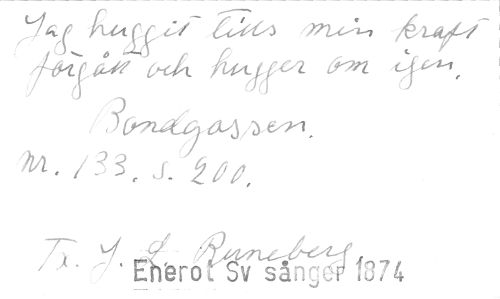 Jag huggit tills min kraft
förgått och hugger om igen.
Bondgossen.
nr. 133. s. 200.
Tx. J. L. Runeberg
Enerot Sv sånger 1874